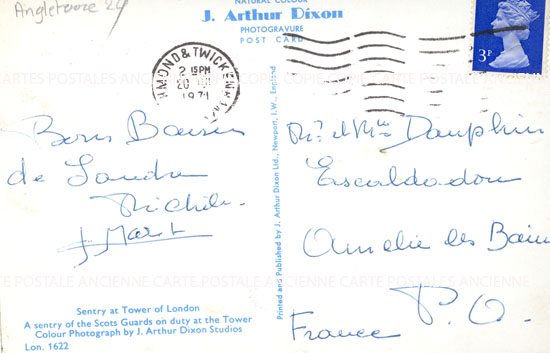 Angleterre 24
NATURAL COLOUR
J. Arthur Dixon
PHOTOGRAVURE
POST CARD
MOND & TWICKENHAM
2 15 PM
20
1971
3P
Bons Baisers
de Londres
Michèle
Mr et Mme Dauphin
Escaldadou
Amélie les Bains
P.O.
France
Printed and Published by J. Arthur Dixon Ltd., Newport, I.W., England
Sentry at Tower of London
A sentry of the Scots Guards on duty at the Tower
Colour Photograph by J. Arthur Dixon Studios
Lon. 1622
CARTE POSTALE ANCIENNE